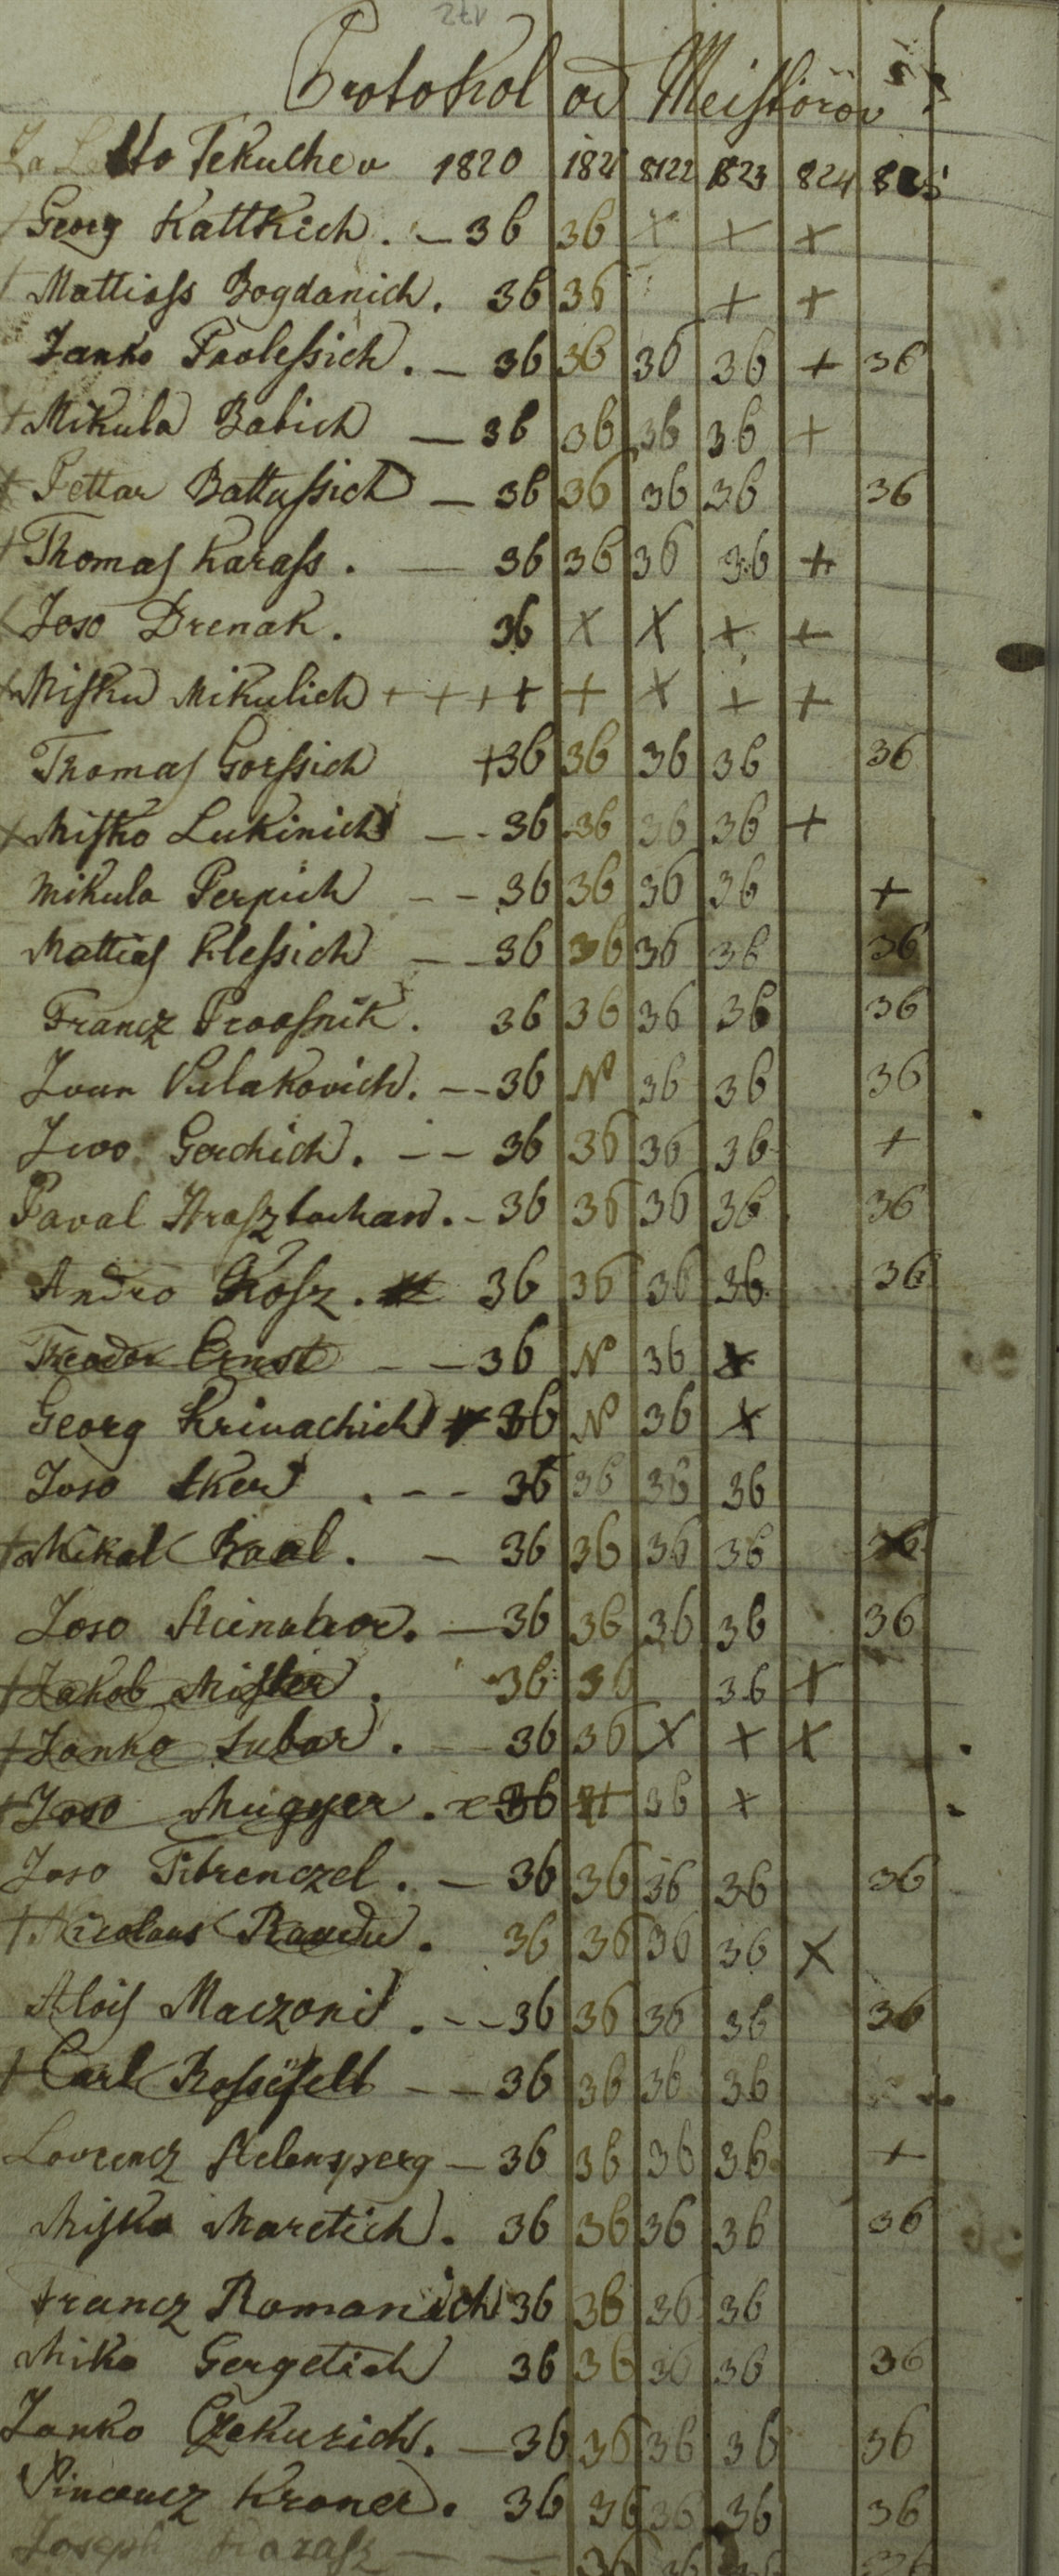 Protokol od Meistörov
Za Lto Tekuchev 1820 1821 8122 823 824 825
Georg Kattkich . – 36 36 x + +
Mattiass Bogdanich . 36 36 + +
Janko Prolessich . – 36 36 36 36 + 36
+ Mikula Babich — 36 36 36 36 +
+ Pettar Battussich – 36 36 36 36 36
+ Thomas Karass . — 36 36 36 36 +
Joso Drenak . 36 x x + +
+ Misku Mikulich + + + + + x + +
Thomas Gorssich + 36 36 36 36 36
+ Misko Lukinich – - 36 36 36 36 +
Mikula Perpich – – 36 36 36 36 +
Mattias Klessich – – 36 36 36 36 36
Francz Praasnik . 36 36 36 36 36
Ivan Vulakovich . – – 36 N 36 36 36
Ivo Gerchich . – – 36 36 36 36 +
Paval . – 36 36 36 36 36
Andro Kosz . 36 36 36 36 36
Theodor Ernst – – 36 N 36 x
Georg Krivachich 36 N 36 x
Joso . – – 36 36 36 36
+ Mikal Baal . – 36 36 36 36 36
Joso . – 36 36 36 36 36
+ Jakob Mister . 36 36 36 +
+ Janko Subar . – 36 36 x + x
+ Joso Mugyer . 36 36 +
Joso Fibrenczel . – 36 36 36 36 36
+ Nicolaus Raudu . 36 36 36 36 x
Alois Maczoni . – – 36 36 36 36 36
+ Carl Rosseffelt – – 36 36 36 36
Lovrencz Stelensperg – 36 36 36 36 +
Misko Maretich . 36 36 36 36 36
Francz Romanich 36 36 36 36
Miko Gergetich 36 36 36 36 36
Janko Czekurich . – 36 36 36 36 36
Vincencz Kroner . 36 36 36 36 36
Joseph Karasz — — 36 36 36 36